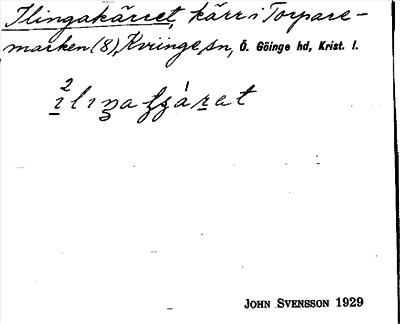 Ilingakärret, kärr i Torpare-
marken (8), Kviinge sn, Ö. Göinge hd, Krist. l.
JOHN SVENSSON 1929